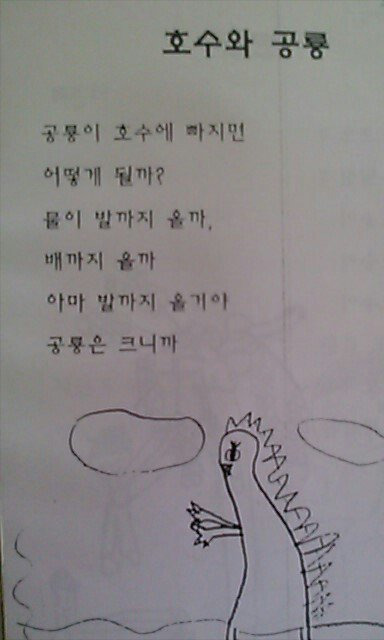 호수와 공룡
공룡이 호수에 빠지면
어떻게 될까?
물이 발까지 올까,
배까지 올까
아마 발까지 올거야
공룡은 크니까